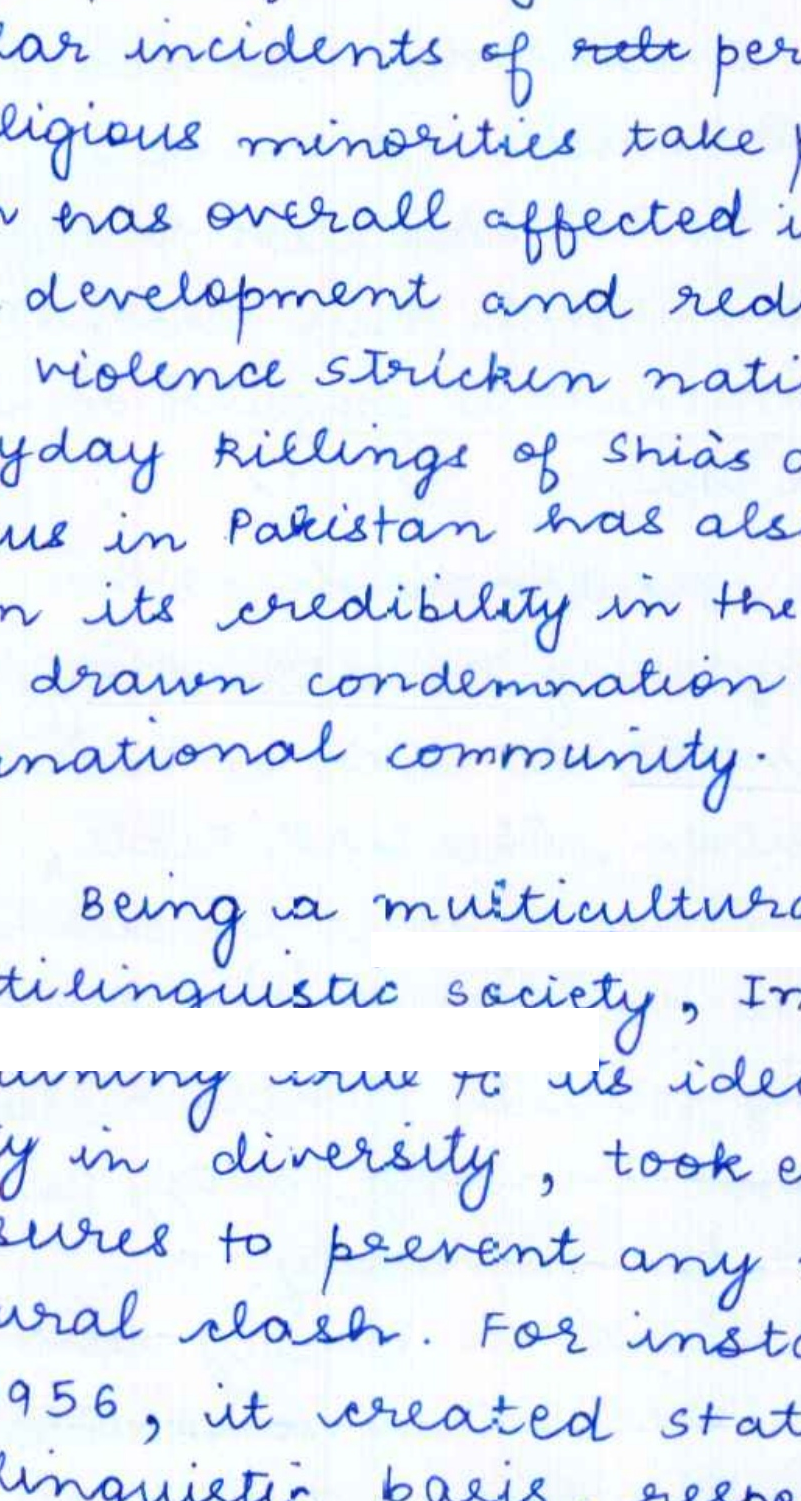 lar incidents of per
ligious minorities take p
has overall affected i
development and red
violence stricken nati
yday killings of Shia's
us in Pakistan has als
n its credibility in the
drawn condemnation
national community.
Being a multicultura
tilinguistic society, In
its idea
y in diversity, took e
sures to prevent any
ural clash. For insta
956, it created stat
linguistic basis, respe